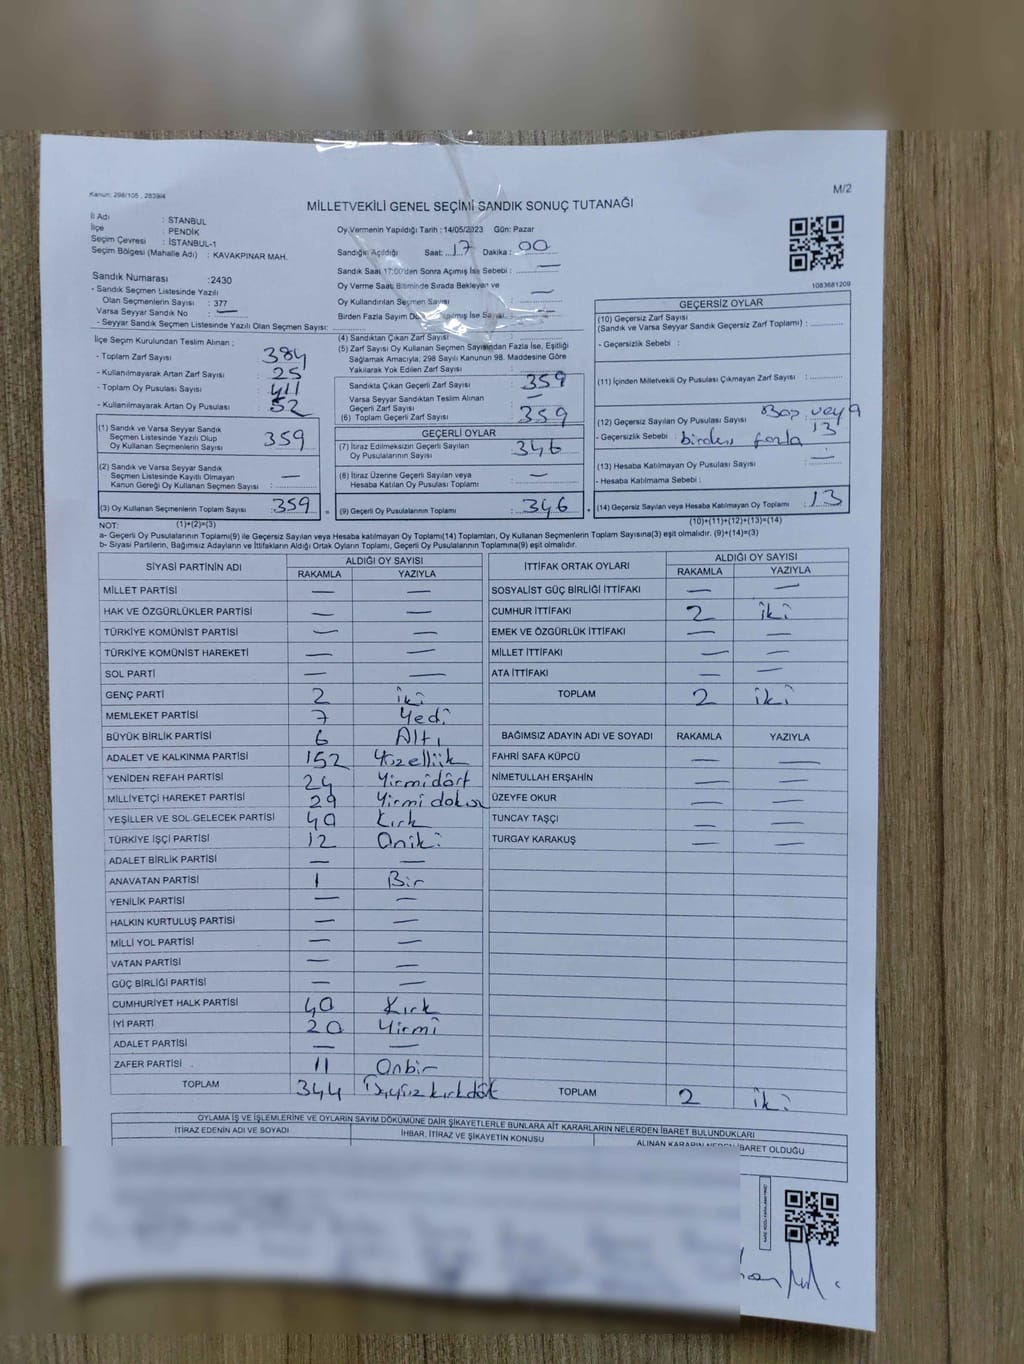 Kanun: 298/105 , 2839/4
M/2
MİLLETVEKİLİ GENEL SEÇİMİ SANDIK SONUÇ TUTANAĞI
İl Adı : STANBUL
İlçe : PENDİK
Seçim Çevresi : İSTANBUL-1
Seçim Bölgesi (Mahalle Adı) : KAVAKPINAR MAH.
Sandık Numarası :2430
- Sandık Seçmen Listesinde Yazılı
Olan Seçmenlerin Sayısı : 377
Varsa Seyyar Sandık No : —
- Seyyar Sandık Seçmen Listesinde Yazılı Olan Seçmen Sayısı:
Oy Vermenin Yapıldığı Tarih : 14/05/2023 Gün: Pazar
Sandığın Açıldığı Saat: 17 Dakika : 00
Sandık Saat 17:00'den Sonra Açılmış İse Sebebi : —
Oy Verme Saati Bitiminde Sırada Bekleyen ve
Oy Kullandırılan Seçmen Sayısı —
Birden Fazla Sayım Dö ılmış İse Sayısı : —
1083681209
İlçe Seçim Kurulundan Teslim Alınan ;
- Toplam Zarf Sayısı : 384
- Kullanılmayarak Artan Zarf Sayısı : 25
- Toplam Oy Pusulası Sayısı : 411
- Kullanılmayarak Artan Oy Pusulası : 52
(1) Sandık ve Varsa Seyyar Sandık
Seçmen Listesinde Yazılı Olup
Oy Kullanan Seçmenlerin Sayısı : 359
(2) Sandık ve Varsa Seyyar Sandık
Seçmen Listesinde Kayıtlı Olmayan
Kanun Gereği Oy Kullanan Seçmen Sayısı : —
(3) Oy Kullanan Seçmenlerin Toplam Sayısı : 359
(4) Sandıktan Çıkan Zarf Sayısı :
(5) Zarf Sayısı Oy Kullanan Seçmen Sayısından Fazla İse, Eşitliği
Sağlamak Amacıyla; 298 Sayılı Kanunun 98. Maddesine Göre
Yakılarak Yok Edilen Zarf Sayısı :
Sandıkta Çıkan Geçerli Zarf Sayısı : 359
Varsa Seyyar Sandıktan Teslim Alınan
Geçerli Zarf Sayısı : —
(6) Toplam Geçerli Zarf Sayısı : 359
GEÇERLİ OYLAR
(7) İtiraz Edilmeksizin Geçerli Sayılan
Oy Pusulalarının Sayısı : 346
(8) İtiraz Üzerine Geçerli Sayılan veya
Hesaba Katılan Oy Pusulası Toplamı : —
(9) Geçerli Oy Pusulalarının Toplamı : 346
GEÇERSİZ OYLAR
(10) Geçersiz Zarf Sayısı
(Sandık ve Varsa Seyyar Sandık Geçersiz Zarf Toplamı) :
- Geçersizlik Sebebi :
(11) İçinden Milletvekili Oy Pusulası Çıkmayan Zarf Sayısı :
(12) Geçersiz Sayılan Oy Pusulası Sayısı Boş veya 13
- Geçersizlik Sebebi : birden fazla
(13) Hesaba Katılmayan Oy Pusulası Sayısı : —
- Hesaba Katılmama Sebebi :
(14) Geçersiz Sayılan veya Hesaba Katılmayan Oy Toplamı : 13
NOT: (1)+(2)=(3)
(10)+(11)+(12)+(13)=(14)
a- Geçerli Oy Pusulalarının Toplamı(9) ile Geçersiz Sayılan veya Hesaba Katılmayan Oy Toplamı(14) Toplamları, Oy Kullanan Seçmenlerin Toplam Sayısına(3) eşit olmalıdır. (9)+(14)=(3)
b- Siyasi Partilerin, Bağımsız Adayların ve İttifakların Aldığı Ortak Oyların Toplamı, Geçerli Oy Pusulalarının Toplamına(9) eşit olmalıdır.
SİYASİ PARTİNİN ADI ALDIĞI OY SAYISI
RAKAMLA YAZIYLA
MİLLET PARTİSİ — —
HAK VE ÖZGÜRLÜKLER PARTİSİ — —
TÜRKİYE KOMÜNİST PARTİSİ — —
TÜRKİYE KOMÜNİST HAREKETİ — —
SOL PARTİ — —
GENÇ PARTİ 2 iki
MEMLEKET PARTİSİ 7 Yedi
BÜYÜK BİRLİK PARTİSİ 6 Altı
ADALET VE KALKINMA PARTİSİ 152 Yüzelliik
YENİDEN REFAH PARTİSİ 24 Yirmidört
MİLLİYETÇİ HAREKET PARTİSİ 29 Yirmi dokuz
YEŞİLLER VE SOL GELECEK PARTİSİ 40 Kırk
TÜRKİYE İŞÇİ PARTİSİ 12 Oniki
ADALET BİRLİK PARTİSİ — —
ANAVATAN PARTİSİ 1 Bir
YENİLİK PARTİSİ — —
HALKIN KURTULUŞ PARTİSİ — —
MİLLİ YOL PARTİSİ — —
VATAN PARTİSİ — —
GÜÇ BİRLİĞİ PARTİSİ — —
CUMHURİYET HALK PARTİSİ 40 Kırk
İYİ PARTİ 20 Yirmi
ADALET PARTİSİ — —
ZAFER PARTİSİ 11 Onbir
TOPLAM 344 Üçyüzkırkdört
İTTİFAK ORTAK OYLARI ALDIĞI OY SAYISI
RAKAMLA YAZIYLA
SOSYALİST GÜÇ BİRLİĞİ İTTİFAKI — —
CUMHUR İTTİFAKI 2 iki
EMEK VE ÖZGÜRLÜK İTTİFAKI — —
MİLLET İTTİFAKI — —
ATA İTTİFAKI — —
TOPLAM 2 iki
BAĞIMSIZ ADAYIN ADI VE SOYADI RAKAMLA YAZIYLA
FAHRİ SAFA KÜPCÜ — —
NİMETULLAH ERŞAHİN — —
ÜZEYFE OKUR — —
TUNCAY TAŞÇI — —
TURGAY KARAKUŞ — —
TOPLAM 2 iki
OYLAMA İŞ VE İŞLEMLERİNE VE OYLARIN SAYIM DÖKÜMÜNE DAİR ŞİKAYETLERLE BUNLARA AİT KARARLARIN NELERDEN İBARET BULUNDUKLARI
İTİRAZ EDENİN ADI VE SOYADI İHBAR, İTİRAZ VE ŞİKAYETİN KONUSU ALINAN KARARIN NEDEN İBARET OLDUĞU